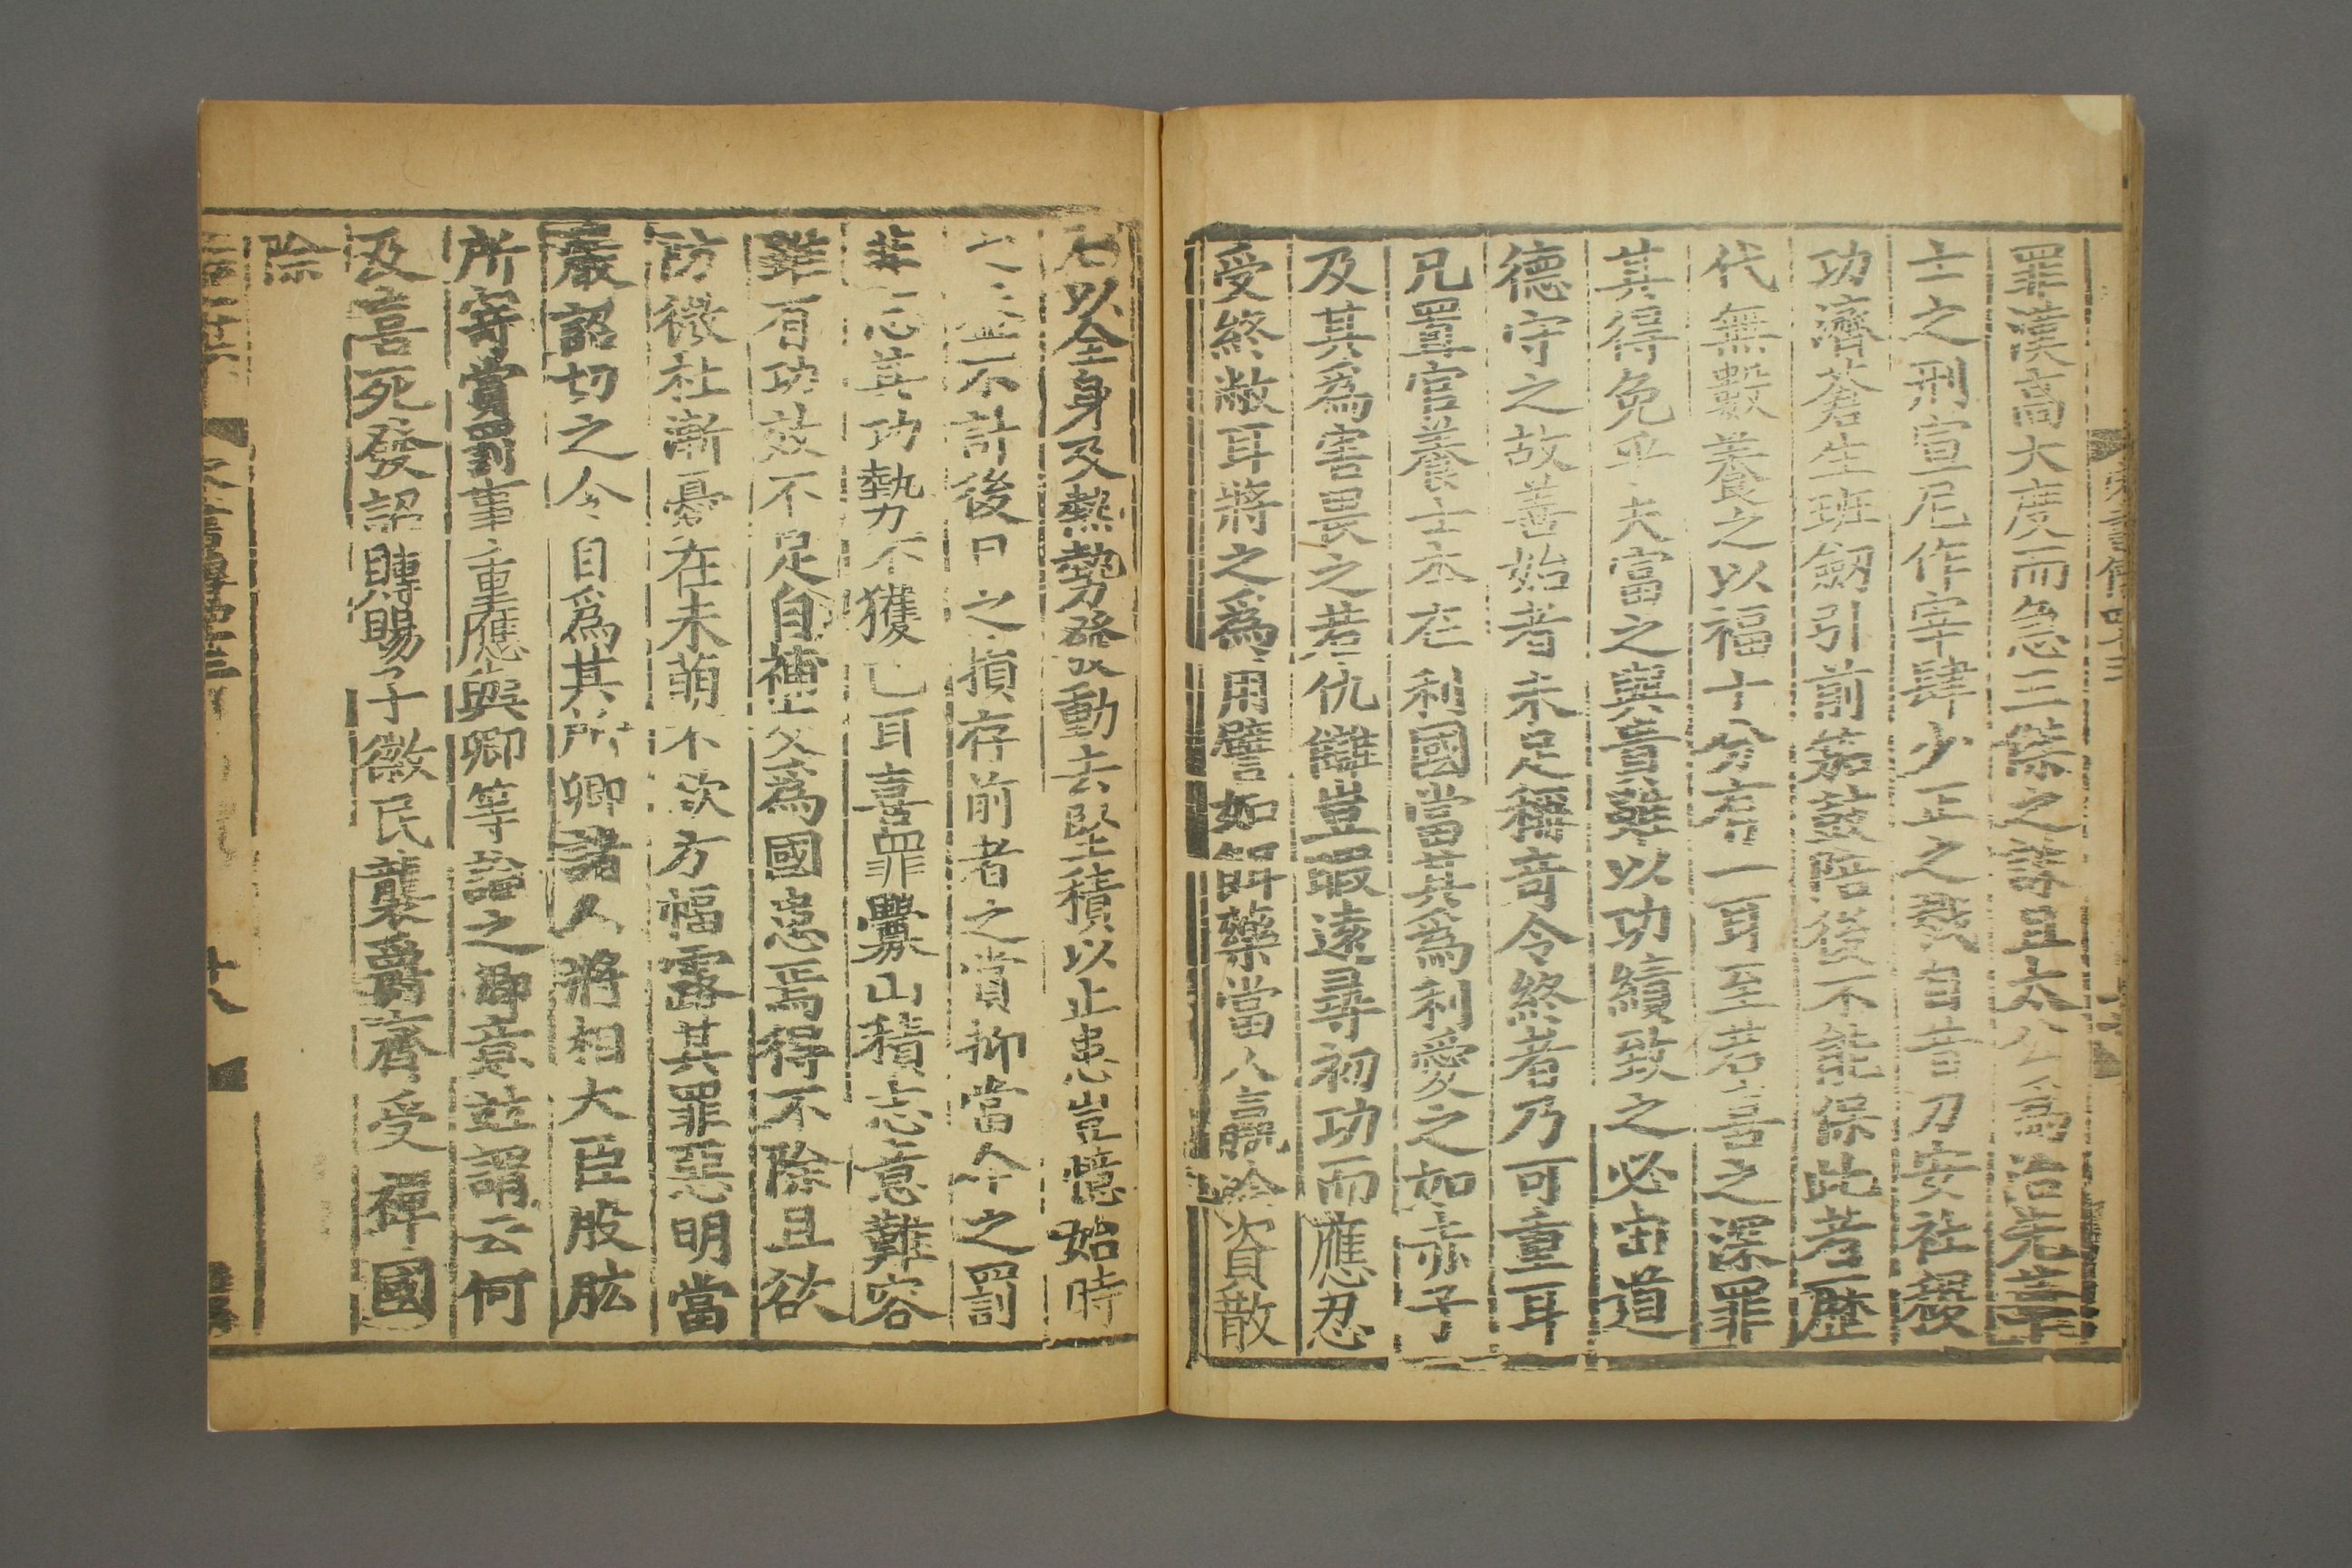 宋書傳四十三
罪漢高大度而急三傑之誅且太公爲治先華
士之刑宣尼作宰肆少正之戮自昔力安社稷
功濟蒼生班劒引前笳鼓陪後不能保此者歷
代無數養之以福十分有一耳至若喜之深罪
其得免乎夫富之與貴雖以功績致之必由道
德守之故善始者未足稱奇令終者乃可重耳
凡置官養士本在利國當其爲利愛之如赤子
及其爲害畏之若仇讎豈暇遠尋初功而應忍
受終敝耳將之爲用譬如餌藥當人羸冷資散
石以全身及熱勢發動去堅積以止患豈憶始時
之益不計後日之損存前者之賞抑當今之罰
非忘其功勢不獲已耳喜罪釁山積志意難容
雖有功效不足自補交爲國患焉得不除且欲
防微杜漸憂在未萌不欲方幅露其罪惡明當
嚴詔切之令自爲其所卿諸人將相大臣股肱
所寄賞罰事重應與卿等論之卿意並謂云何
及喜死發詔賻賜子徽民襲爵齊受禪國
除
十八